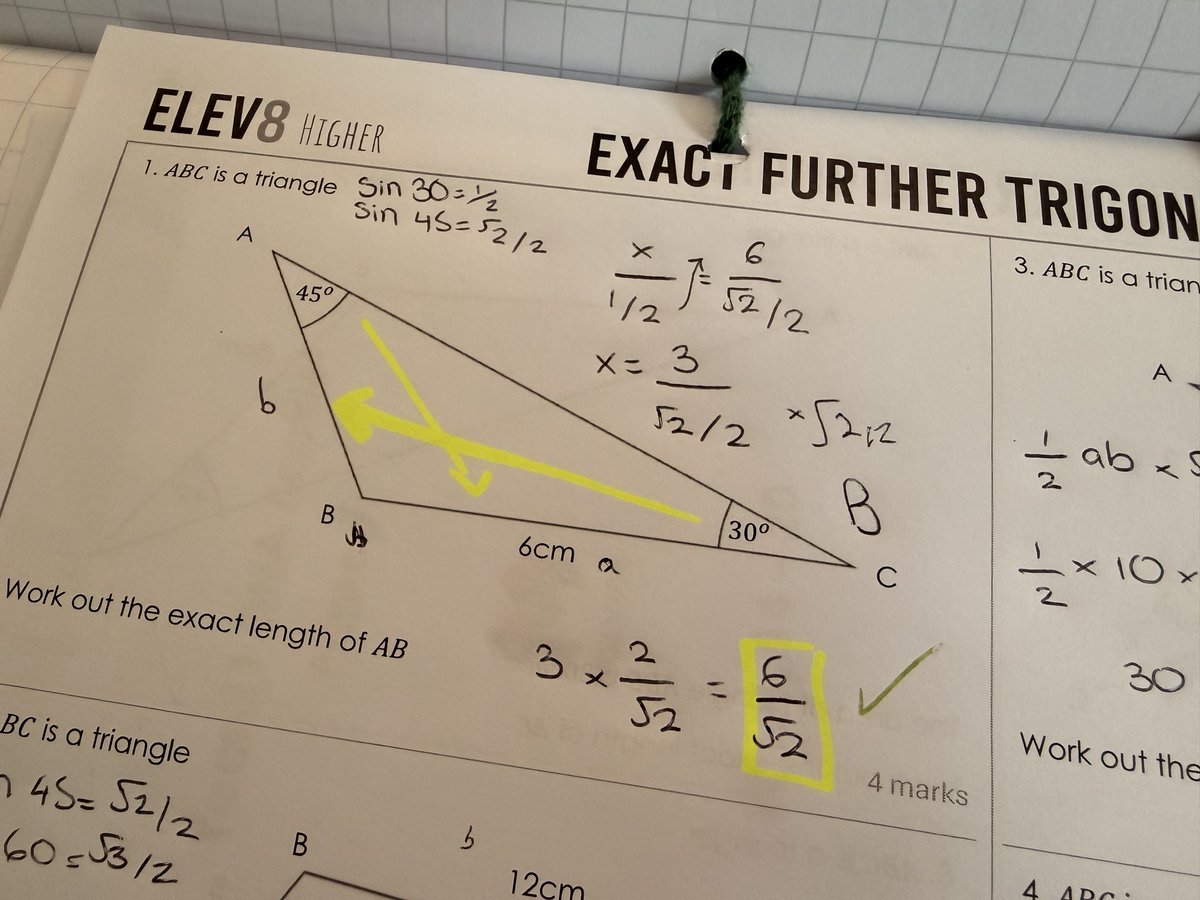 ELEV8 HIGHER
EXACT FURTHER TRIGON
1. ABC is a triangle
Sin 30 = 1/2
Sin 45 = √2/2
A
45°
b
B
6cm a
30°
C
B
x
1/2
=
6
√2/2
x = 3
√2/2
Work out the exact length of AB
3 × 2/√2 = 6/√2
✓
4 marks
BC is a triangle
n 45 = √2/2
60 = √3/2
B
b
12cm
3. ABC is a trian
A
1/2 ab × S
1/2 × 10 ×
30
Work out the
4